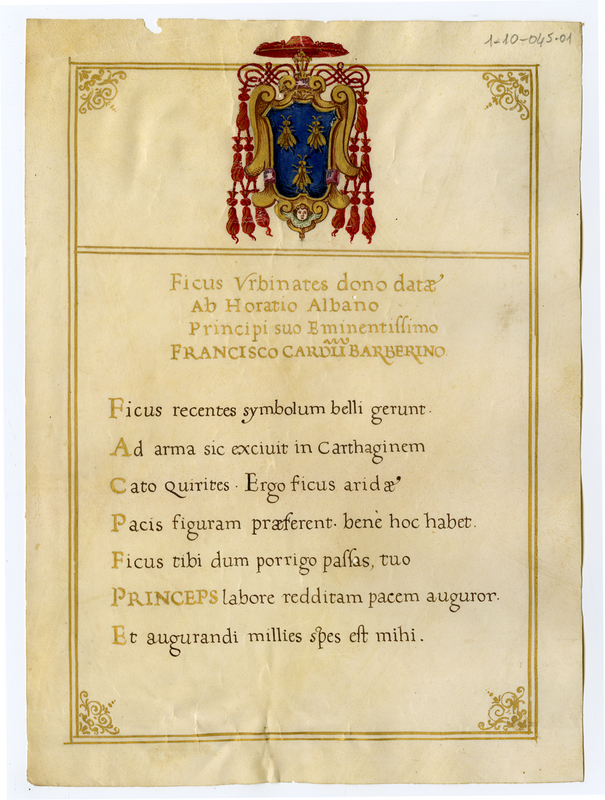 1-10-045.01
Ficus Vrbinates dono datæ
Ab Horatio Albano
Principi suo Eminentiſſimo
FRANCISCO CARDII BARBERINO.
Ficus recentes symbolum belli gerunt.
Ad arma sic exciuit in Carthaginem
Cato Quirites. Ergo ficus aridæ
Pacis figuram præferent. benè hoc habet.
Ficus tibi dum porrigo paſſas, tuo
PRINCEPS labore redditam pacem auguror.
Et augurandi millies spes est mihi.